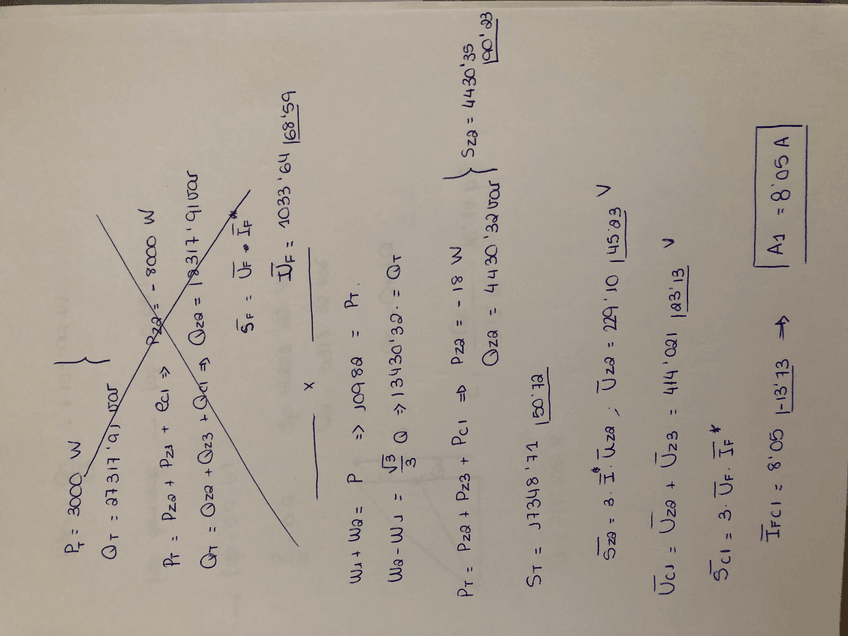 P_T = 3000 W
Q_T = 27317'91 var }
P_T = P_Z2 + P_Z1 + P_C1 ⇒ P_Z2 = -8000 W
Q_T = Q_Z2 + Q_Z3 + Q_C1 ⇒ Q_Z2 = 12317'91 var
S̄_F = Ū_F • Ī_F*
Ū_F = 1033'64 |68'59
x
W1 + W2 = P ⇒ 10982 = P_T.
W2 - W1 = √3/3 Q ⇒ 13430'32. = Q_T
P_T = P_Z2 + P_Z3 + P_C1 ⇒ P_Z2 = -18 W
Q_Z2 = 4430'32 var } S_Z2 = 4430'35 |90'23
S_T = 17348'71 |50'72
S̄_Z2 = 3 · Ī* · Ū_Z2 ; Ū_Z2 = 229'10 |45'23 V
Ū_C1 = Ū_Z2 + Ū_Z3 = 414'021 |23'13 V
S̄_C1 = 3 · Ū_F · Ī_F*
Ī_FC1 = 8'05 |-13'73 ⇒ A1 = 8'05 A